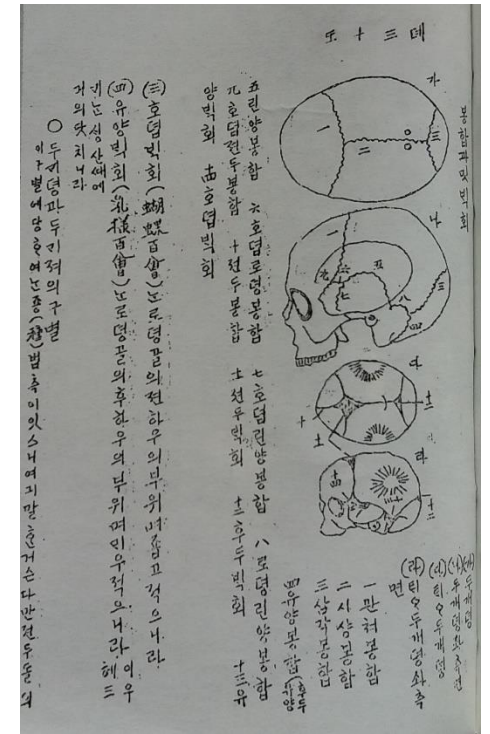 뎨三十도
봉합과밋빅회
가
一
二
三
나
一
五
六
七
八
九
三
다
十
土
十三
라
十四
十二
(가)두개뎡
(나)두개뎡좌측면
(다)티ᄋᆞ두개뎡
(라)티ᄋᆞ두개뎡좌측
면
一관혀봉합
二시상봉합
三삼각봉합
四유양봉합(후두유양
五린양봉합 六호뎝로뎡봉합 七호뎝린양봉합 八로뎡린양봉합
九호뎝젼두봉합 十젼두봉합 十一젼두빅회 十二후두빅회 十三유
양빅회 十四호뎝빅회
(三)호뎝빅회(蝴蝶百會)는로뎡골의젼하우의부위며좁고적으니라
(四)유양빅회(乳樣百會)는로뎡골의후하우의부위며
二는싱산때에
거의닷치니라
○두기뎡과두기져의구별
이구별에당ᄒᆞ여는죵(種)법측이잇스니여긔말ᄒᆞᆫ거슨다만젼두골의